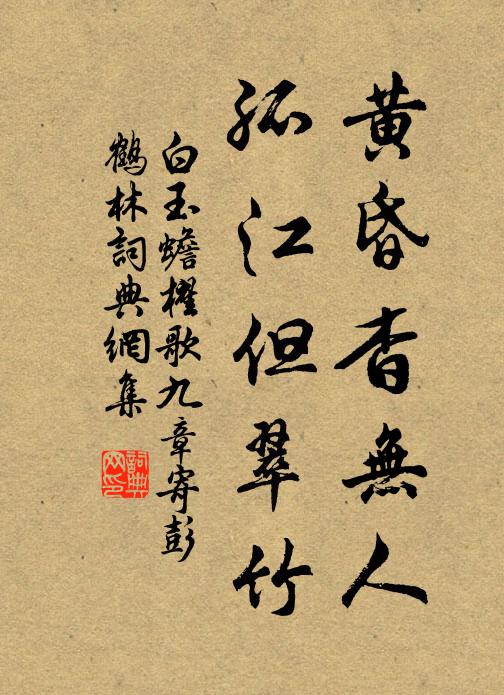 黃昏杳無人
孤江但翠竹
白玉蟾櫂歌九章寄彭
鶴林詞典網集
詞典
网印